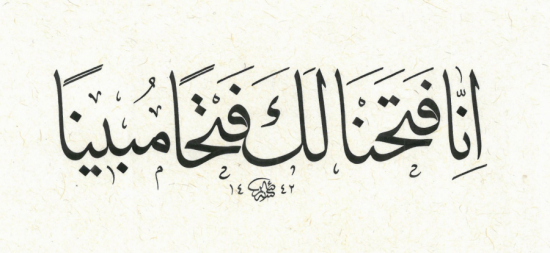 إِنَّا فَتَحْنَا لَكَ فَتْحًا مُبِينًا
١٤٤٢